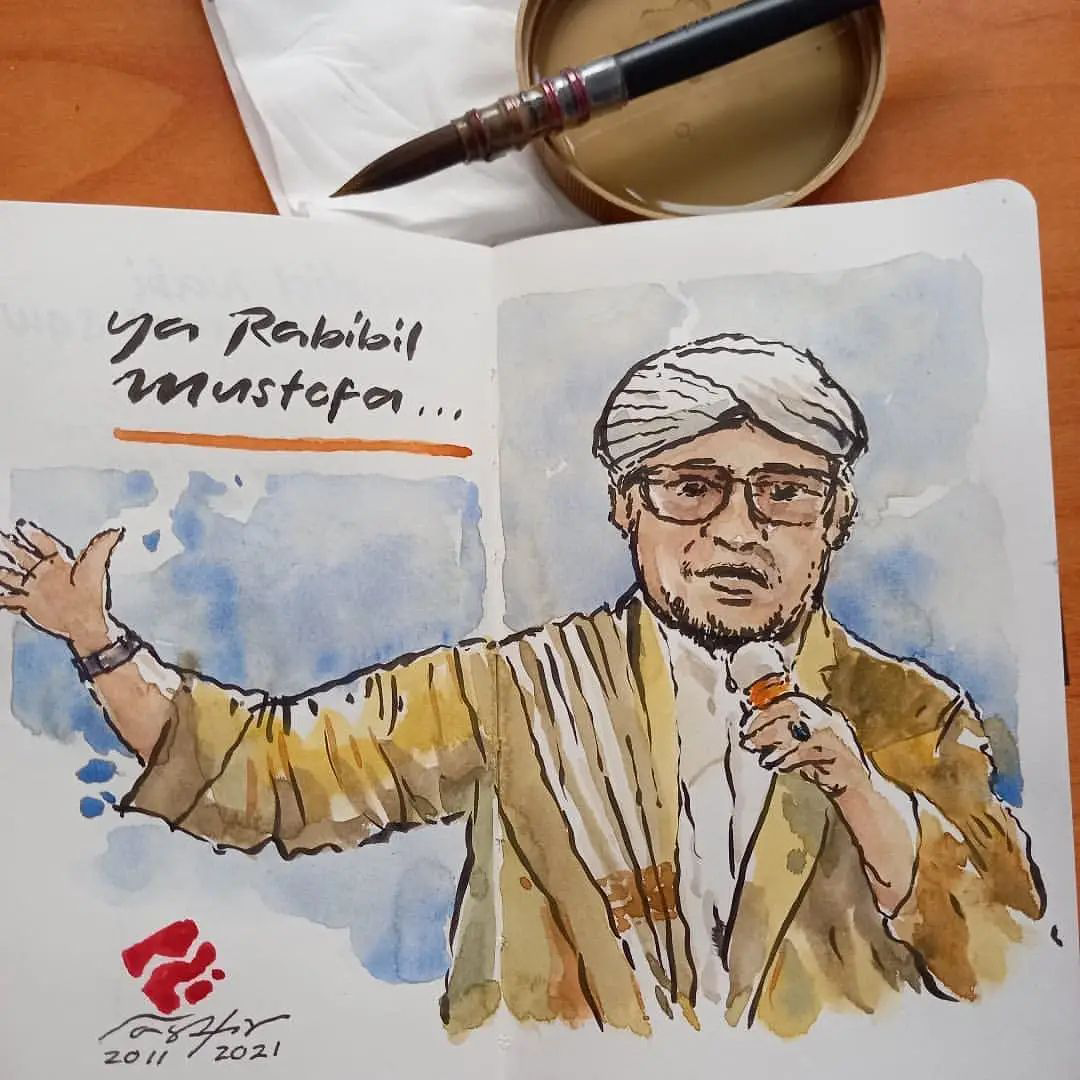 ya Rabibil
mustofa...
2011 2021